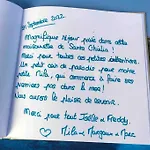 Septembre 2022
Magnifique séjour passé dans cette
maisonnette de Santa Ghiulia !
Merci pour toutes ces petites attentions.
Un petit coin de paradis pour notre
petite Mila, qui commence à faire ses
premiers pas dans la mer !
Nous aurons le plaisir de revenir.
Merci pour tout Joëlle et Freddy.
Mila et Margaux et Marc